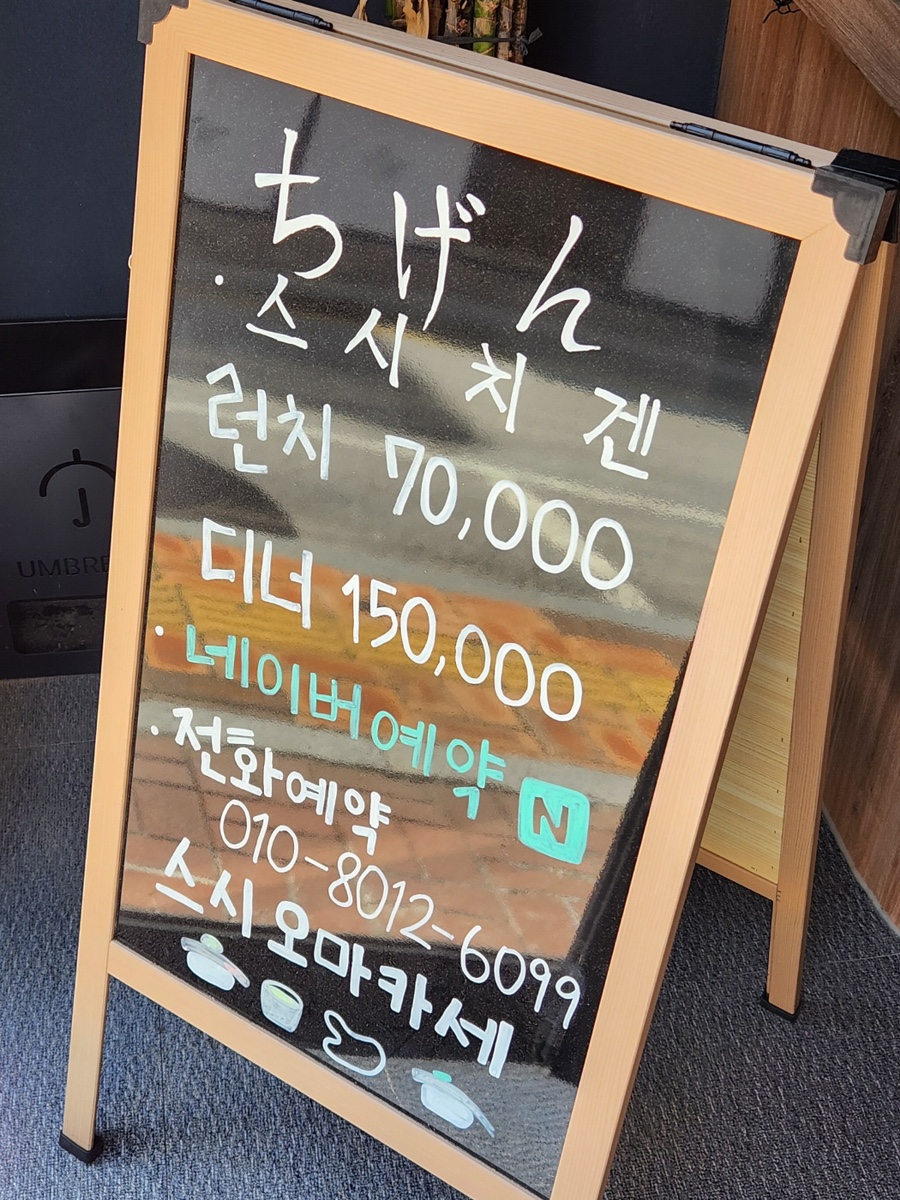 ちげん
· 스시치겐
런치 70,000
디너 150,000
· 네이버예약 N
· 전화예약
010-8012-6099
스시오마카세
UMBRE